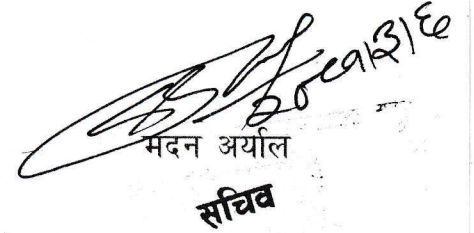 २०८१।३।६
मदन अर्याल
सचिव